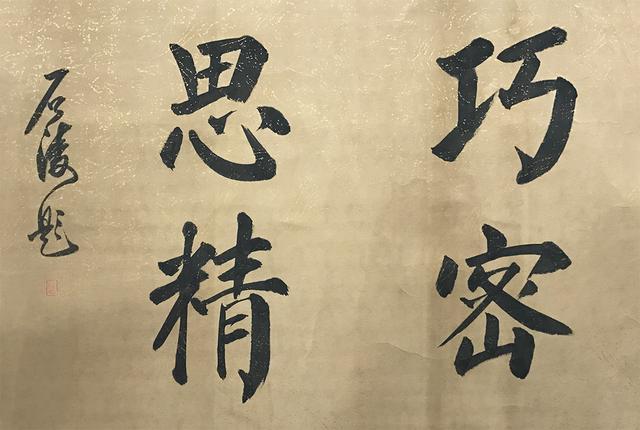 巧密
思精
石陵題